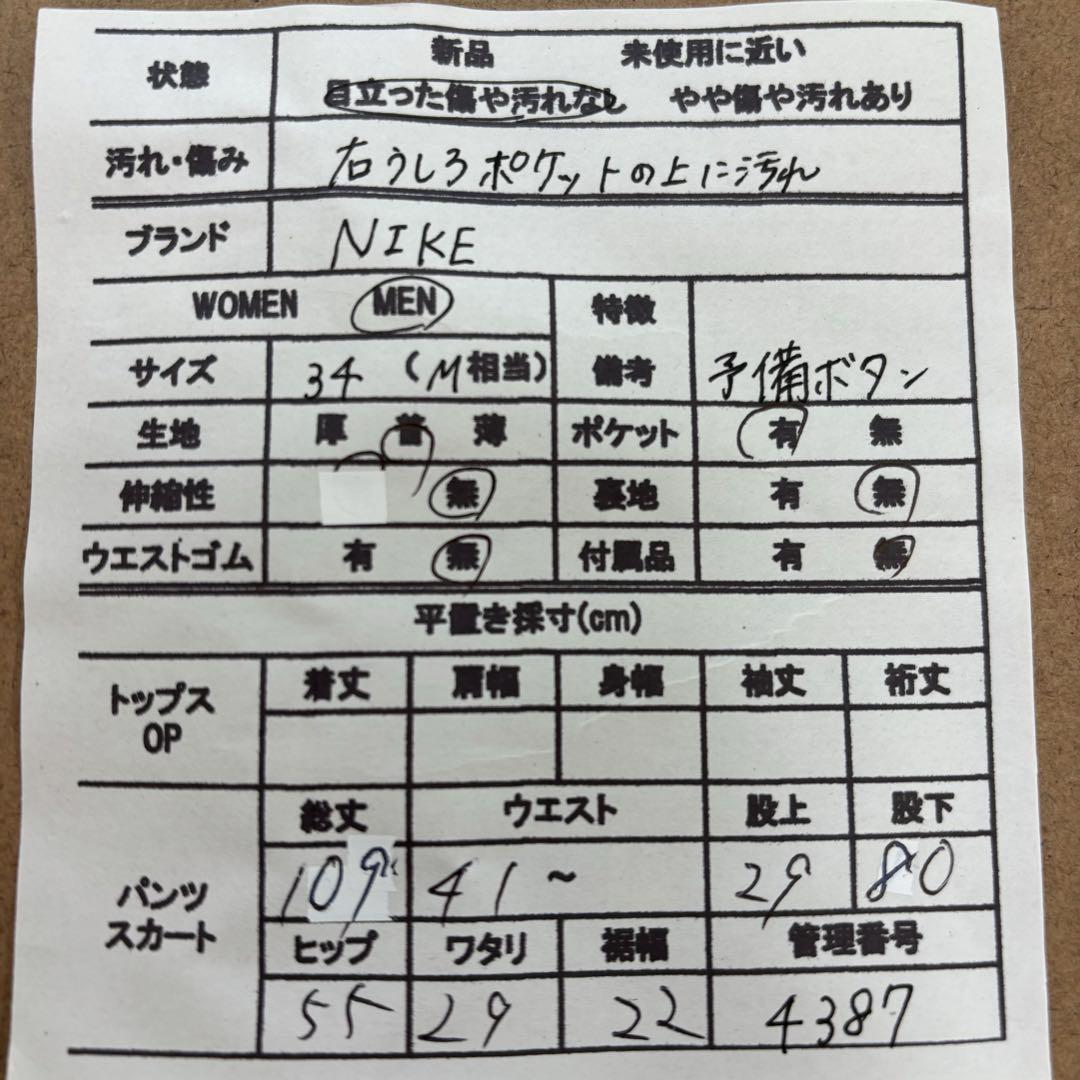 状態 新品 未使用に近い
目立った傷や汚れなし やや傷や汚れあり
汚れ・傷み 右うしろポケットの上に汚れ
ブランド NIKE
WOMEN MEN 特徴
サイズ 34 (M相当) 備考 予備ボタン
生地 厚 普 薄 ポケット 有 無
伸縮性 無 裏地 有 無
ウエストゴム 有 無 付属品 有 無
平置き採寸(cm)
トップス 着丈 肩幅 身幅 袖丈 裄丈
OP
総丈 ウエスト 股上 股下
パンツ 109 41~ 29 80
スカート ヒップ ワタリ 裾幅 管理番号
55 29 22 4387